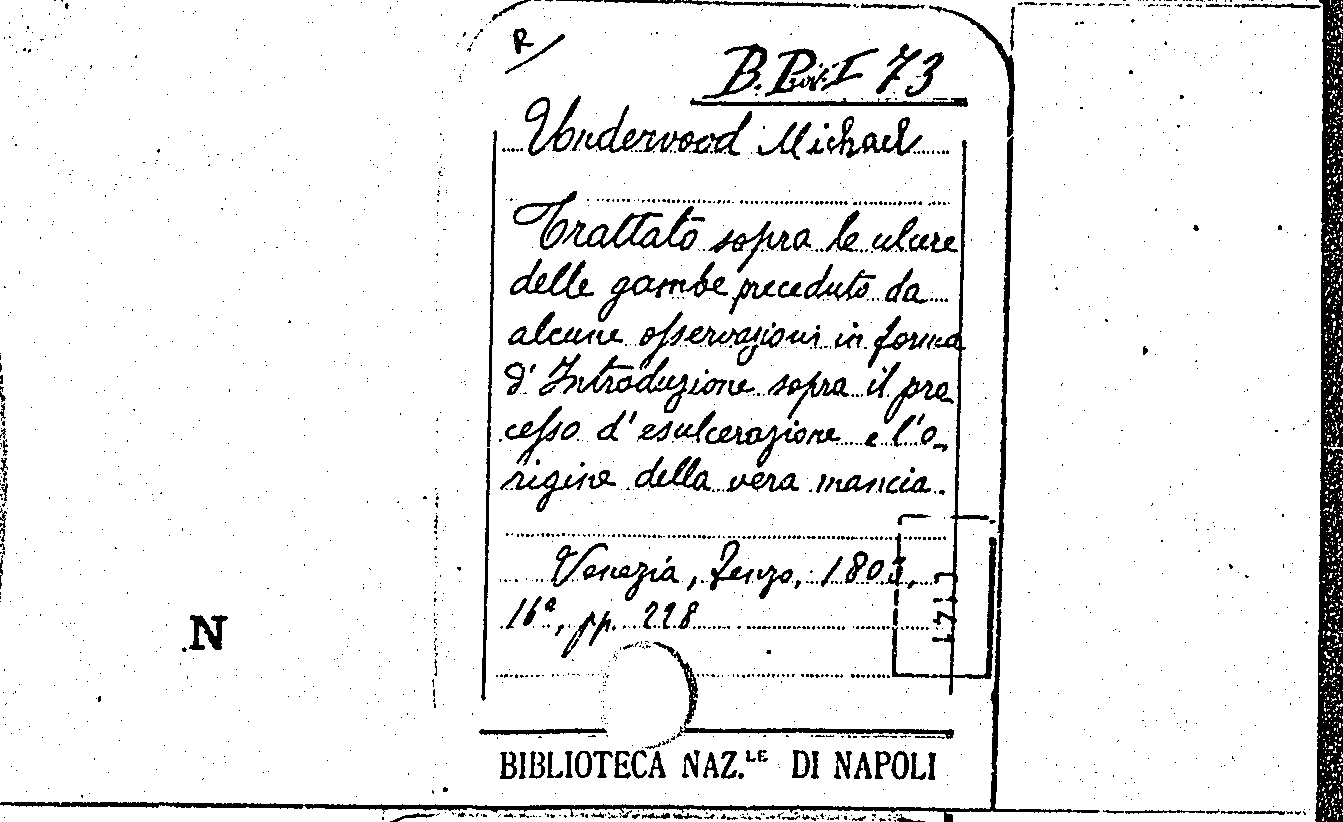 R/
B. Prov. I 73
Underwood Michael
Trattato sopra le ulcere
delle gambe preceduto da
alcune osservazioni in forma
d'Introduzione sopra il pro
cesso d'esulcerazione e l'o-
rigine della vera mancia.
Venezia, Zenzo, 1803,
16°, pp. 228
N
BIBLIOTECA NAZ.LE DI NAPOLI